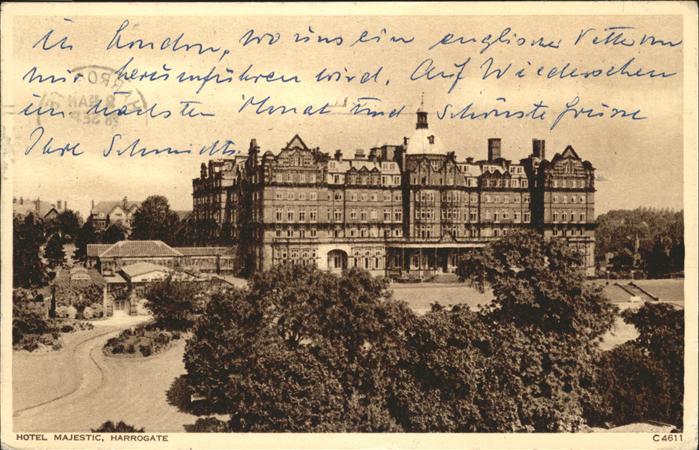 in London, wo uns ein englischer Vetter von
mir herumführen wird. Auf Wiedersehen
im nächsten Monat und schönste Grüsse
Ihre Schmidts.
HOTEL MAJESTIC, HARROGATE
C4611